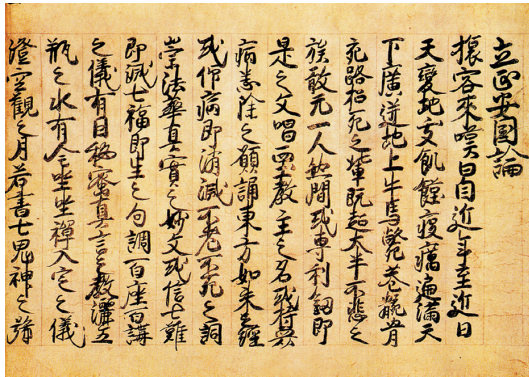 立正安国論
旅客來嘆曰自近年至近日
天變地夭飢饉疫癘遍満天
下廣迸地上牛馬斃巷骸骨
充路招死之輩既超大半不悲之
族敢无一人然間或専利釼即
是之文唱西土教主之名或持衆
病悉除之願誦東方如来之経
或仰病即消滅不老不死之詞
崇法華真實之妙文或信七難
即滅七福即生之句調百座百講
之儀有因秘蜜真言之教灑五
瓶之水有全坐禪入定之儀
澄空觀之月若書七鬼神之号